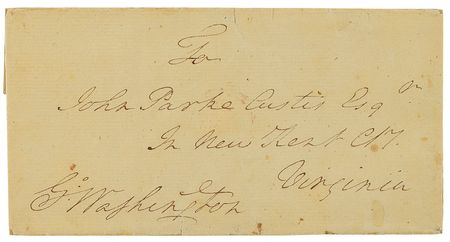 To
John Parke Custis Esqr
In New Kent Cty.
Virginia
Go: Washington